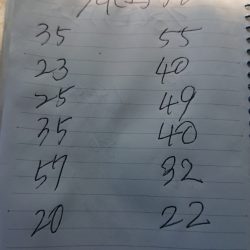 35 55
23 40
25 49
35 40
57 32
20 22